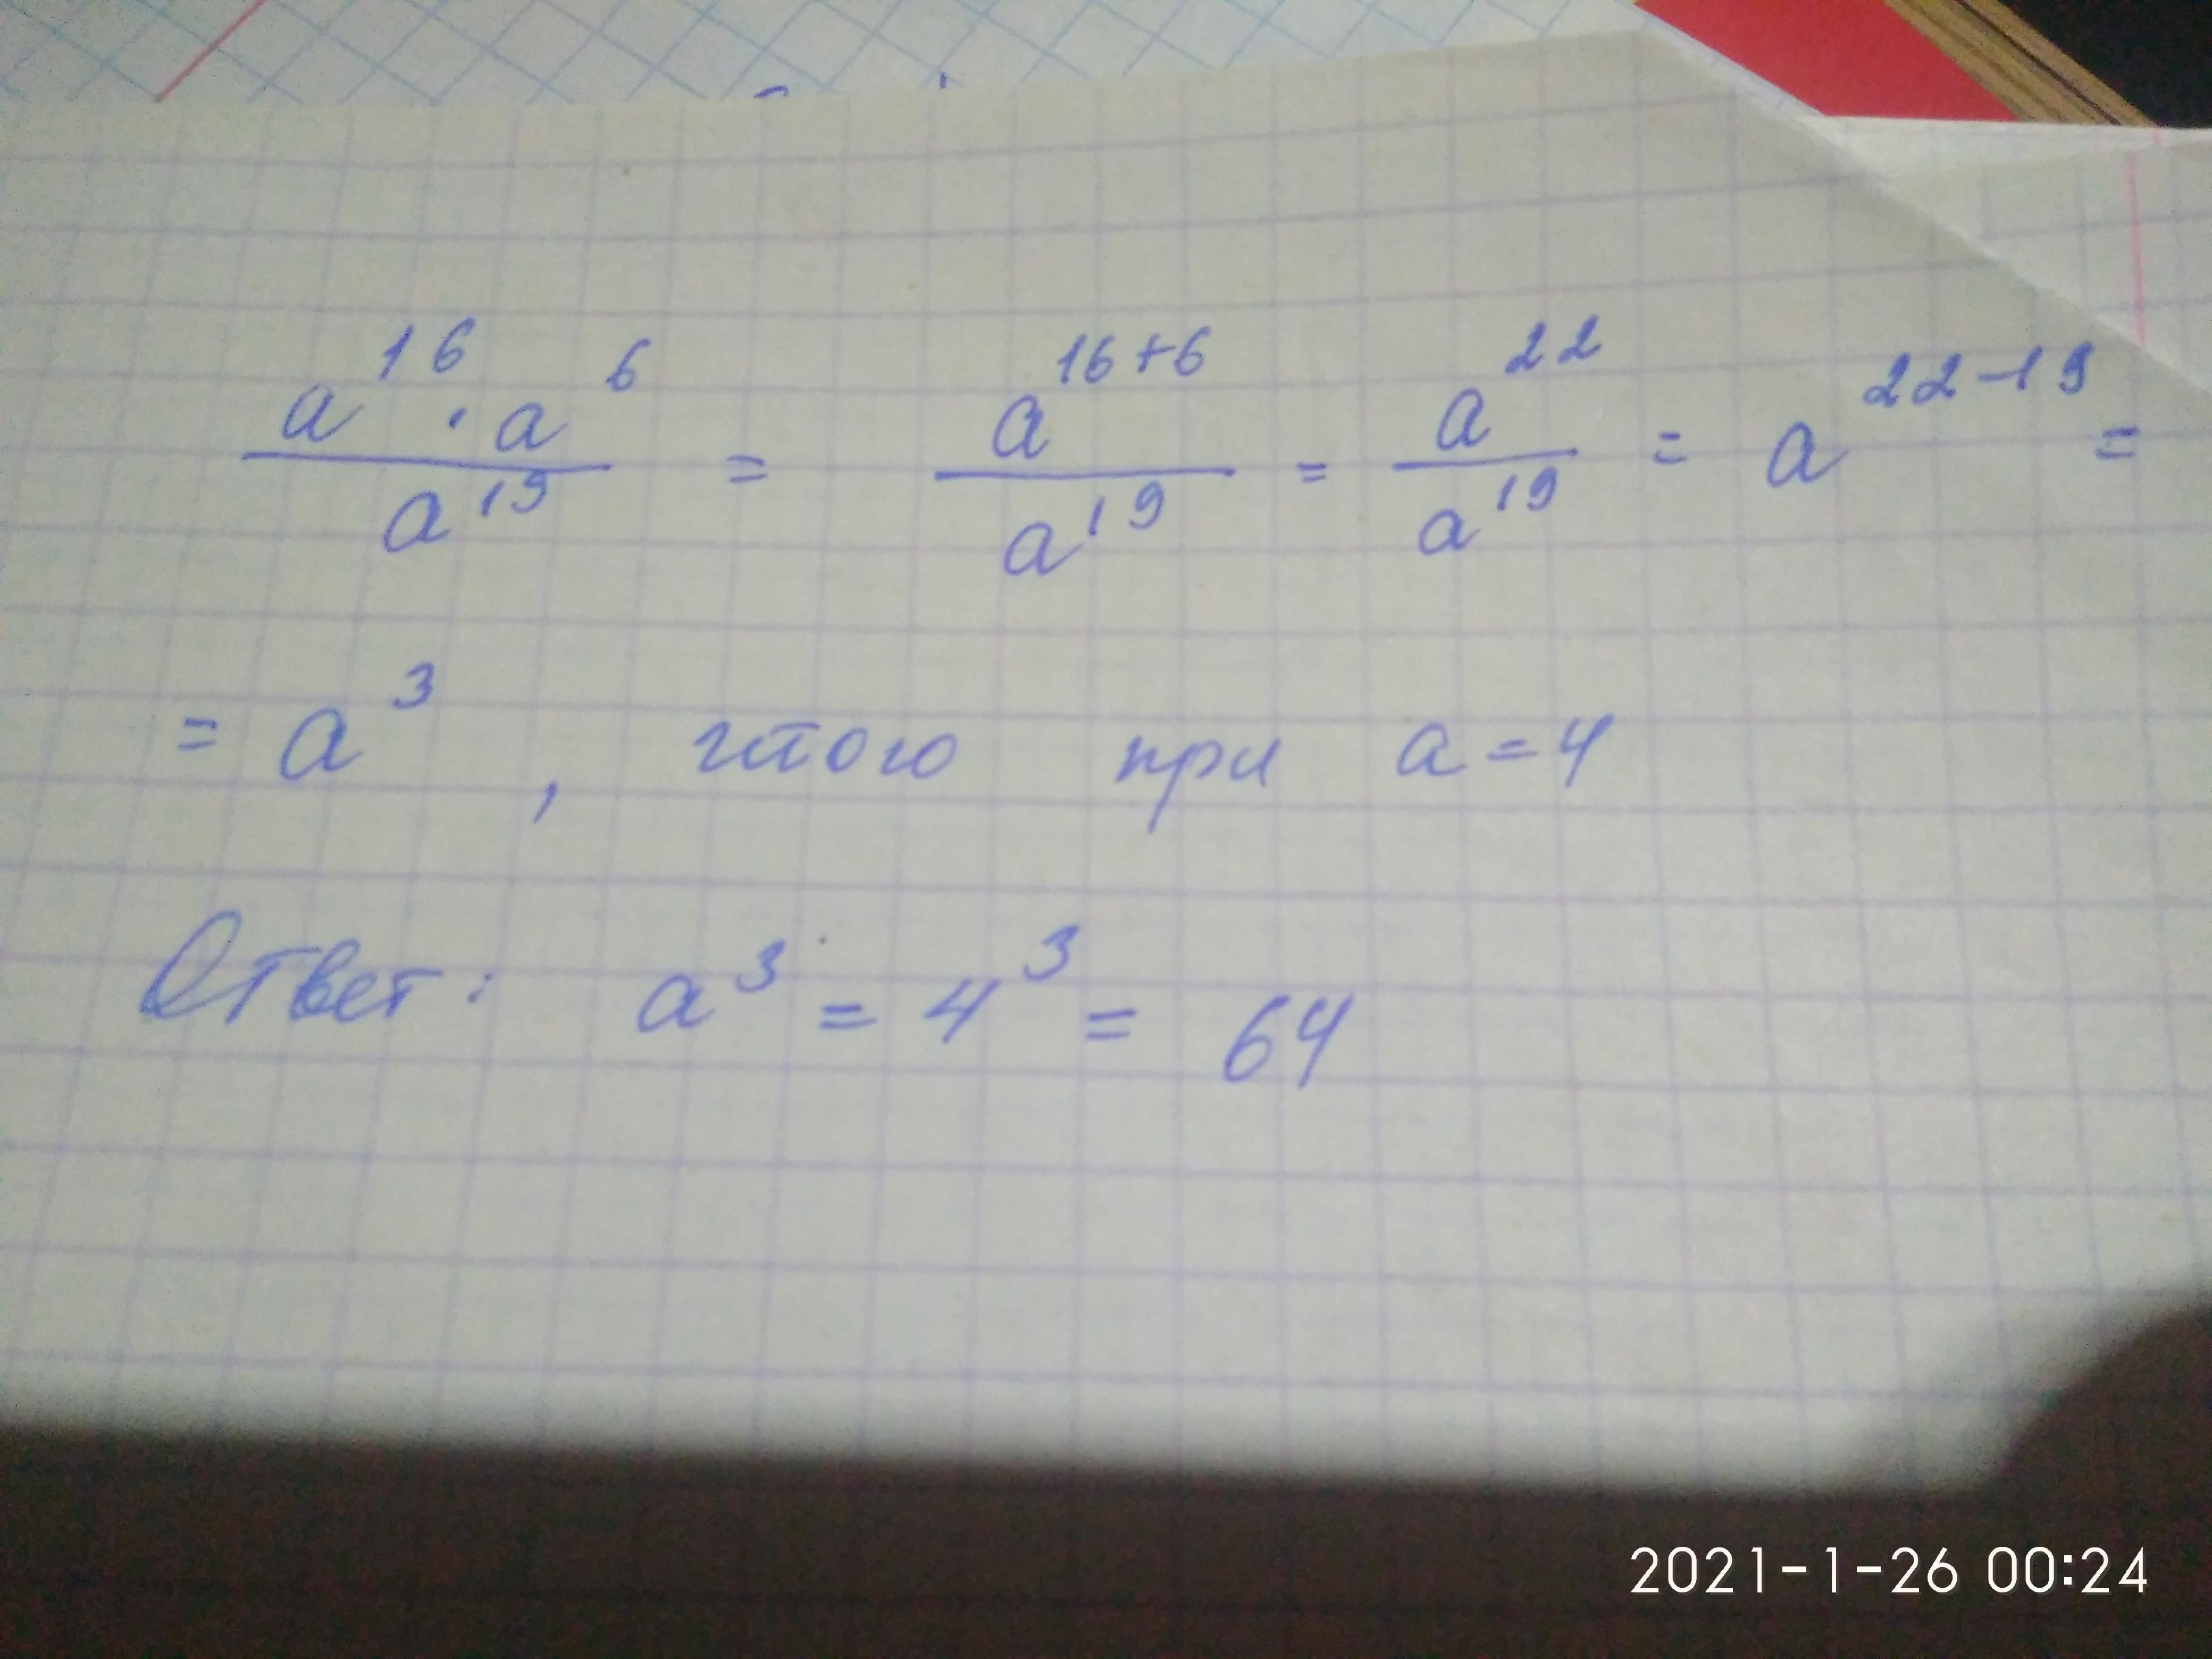 a¹⁶ · a⁶ / a¹⁹ = a¹⁶⁺⁶ / a¹⁹ = a²² / a¹⁹ = a²²⁻¹⁹ =
= a³, итого при a = 4
Ответ: a³ = 4³ = 64
2021-1-26 00:24